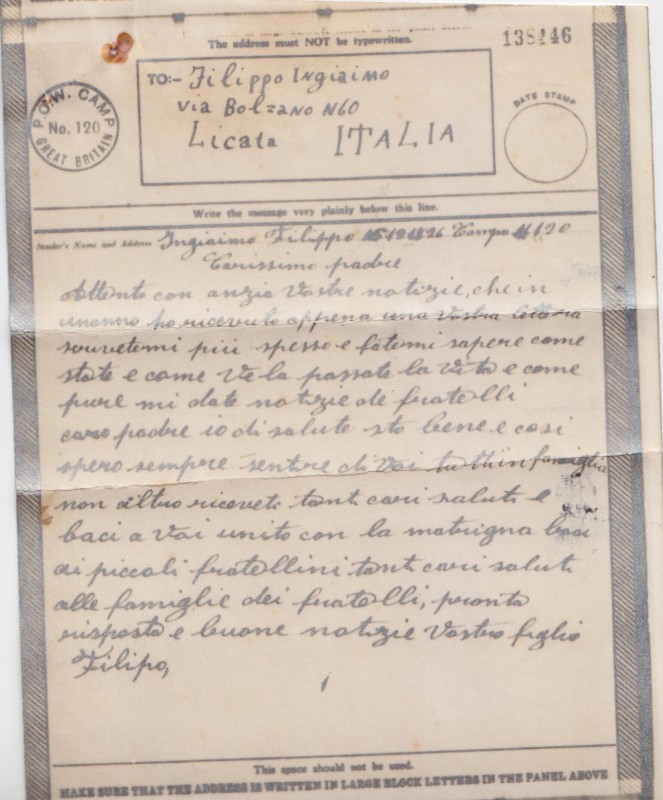 The address must NOT be typewritten.
138446
P.O.W. CAMP
No. 120
GREAT BRITAIN
TO:- Filippo Ingiaimo
via Bolzano N60
Licata ITALIA
DATE STAMP
Write the message very plainly below this line.
Sender's Name and Address Ingiaimo Filippo Campo 120
Carissimo padre
Attento con anzia Vostre notizie, che in
unanno ho ricevuto appena una Vostra lettera
scrivetemi più spesso e fatemi sapere come
state e come Ve la passate la Vita e come
pure mi date notizie de fratelli
caro padre io di salute sto bene e cosi
spero sempre sentire di Voi tutti in famiglia
non altro ricevete tanti cari saluti e
baci a Voi unito con la matrigna baci
ai piccoli fratellini tanti cari saluti
alle famiglie dei fratelli, pronta
risposta e buone notizie Vostro figlio
Filipo,
This space should not be used.
MAKE SURE THAT THE ADDRESS IS WRITTEN IN LARGE BLOCK LETTERS IN THE PANEL ABOVE